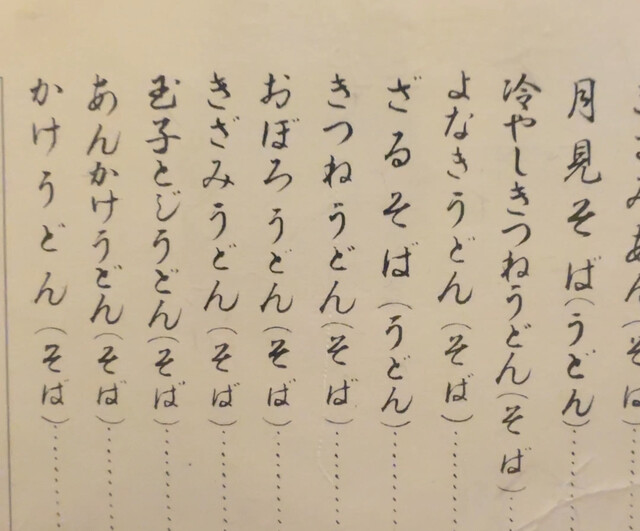 きざみあん(そば
月見そば(うどん)
冷やしきつねうどん(そば)
よなきうどん(そば)
ざるそば(うどん)
きつねうどん(そば)
おぼろうどん(そば)
きざみうどん(そば)
玉子とじうどん(そば)
あんかけうどん(そば)
かけうどん(そば)